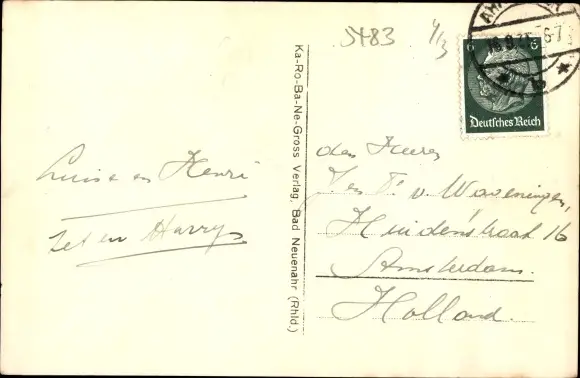 St83 4/3
6 6
Deutsches Reich
Ka-Ro-Ba-Ne-Gross Verlag, Bad Neuenahr (Rhld.)
Luise en Henri
Jet en Harry
den Heeren
J. en P. v. Waveningen,
straat 16
Amsterdam.
Holland.